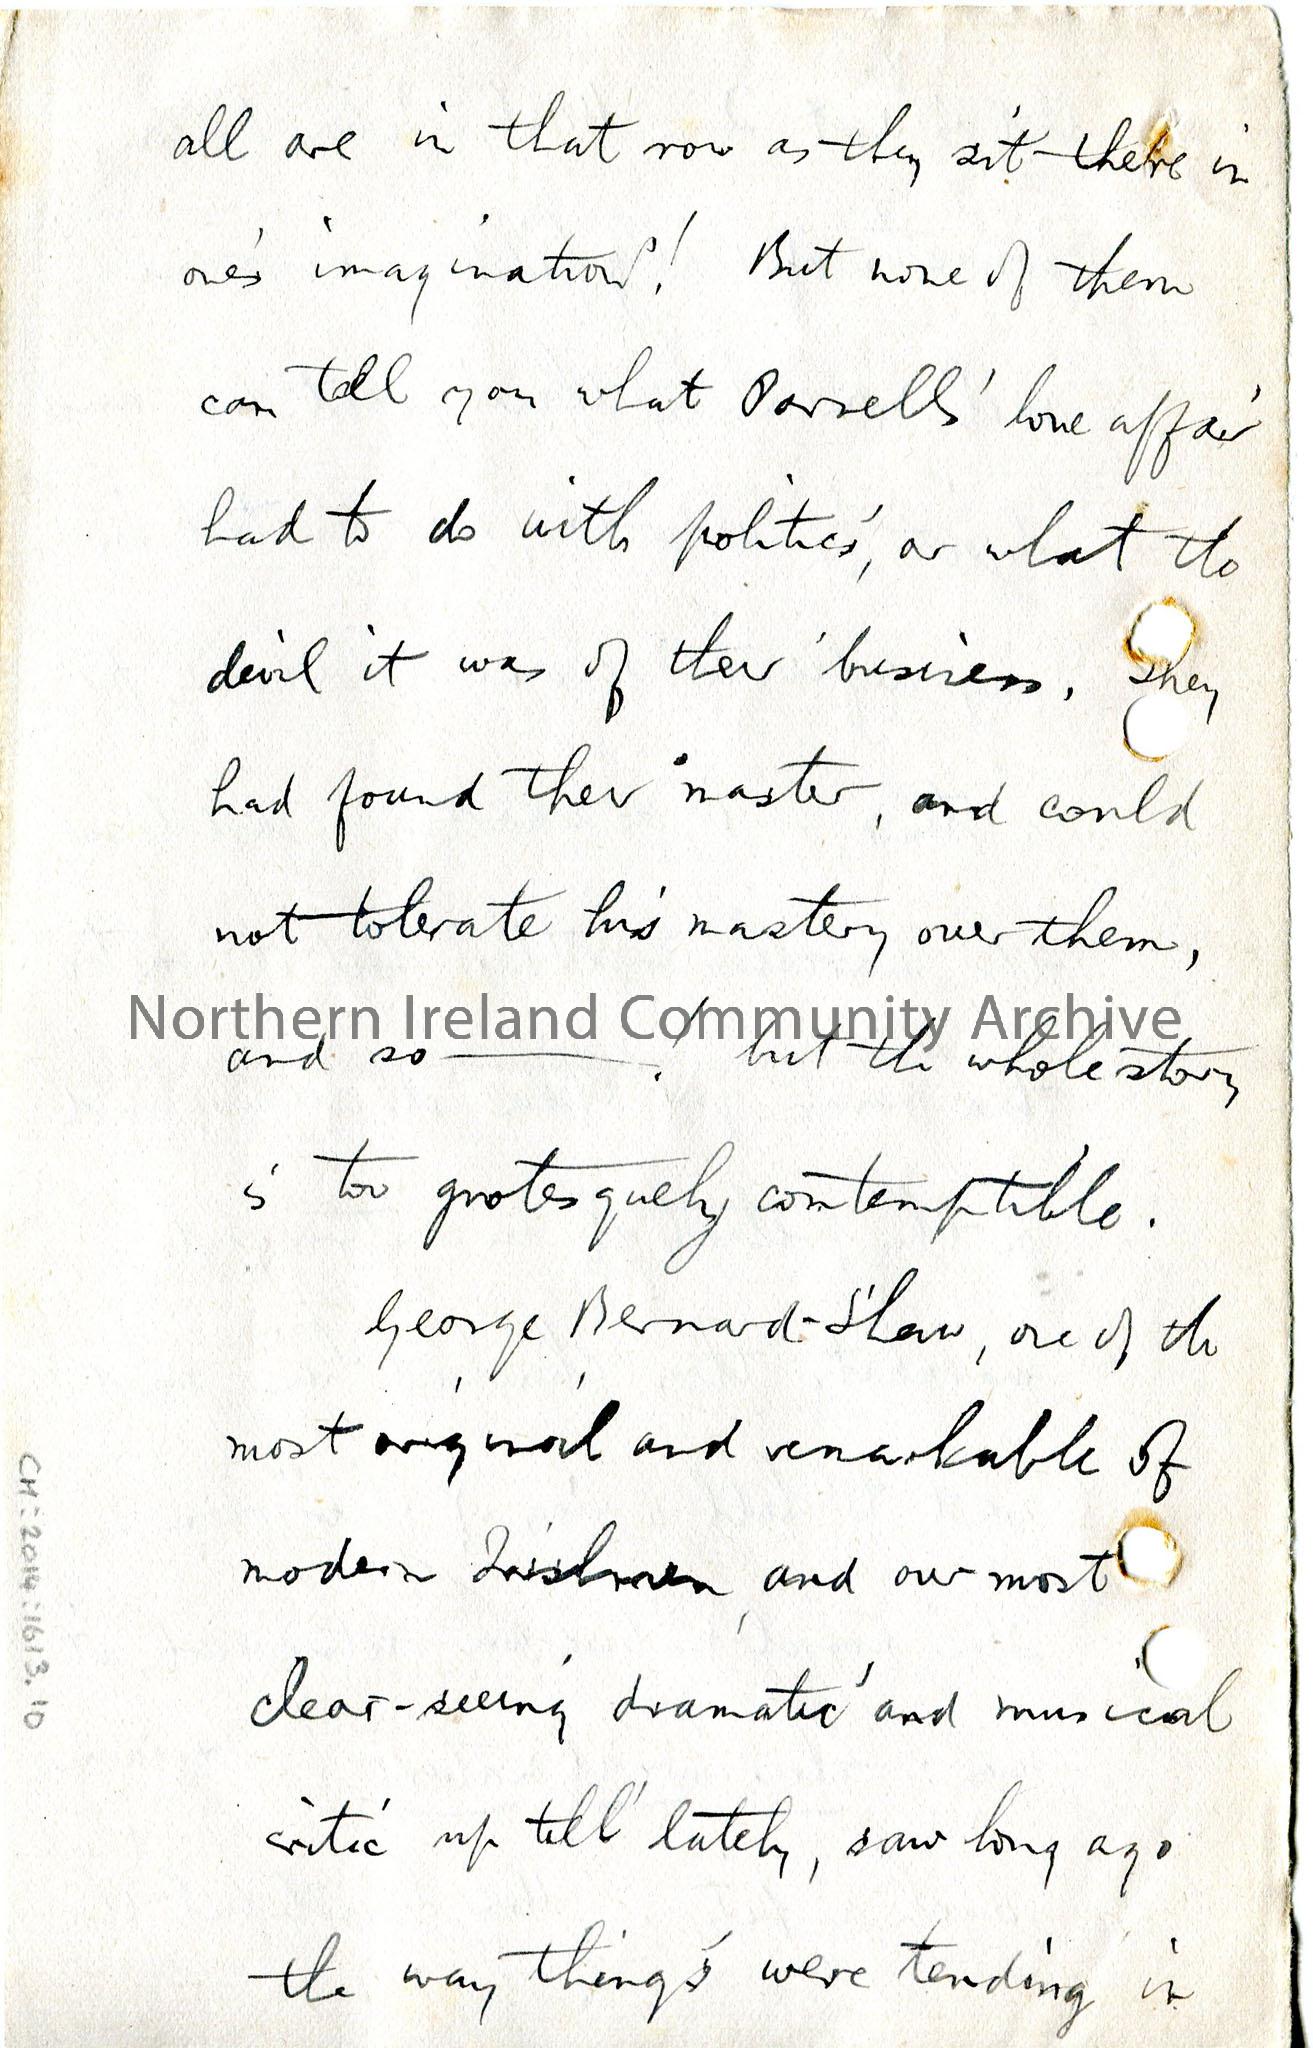 all are in that row as they sit there in
one's imagination! But none of them
can tell you what Parnell's love affair
had to do with politics, or what the
devil it was of their business. They
had found their master, and could
not tolerate his mastery over them,
Northern Ireland Community Archive
and so ———! but the whole story
is too grotesquely contemptible.
George Bernard-Shaw, one of the
most original and remarkable of
modern Irishmen, and our most
clear-seeing dramatic and musical
critic up till lately, saw long ago
the way things were tending in
CM:2014:1613.10